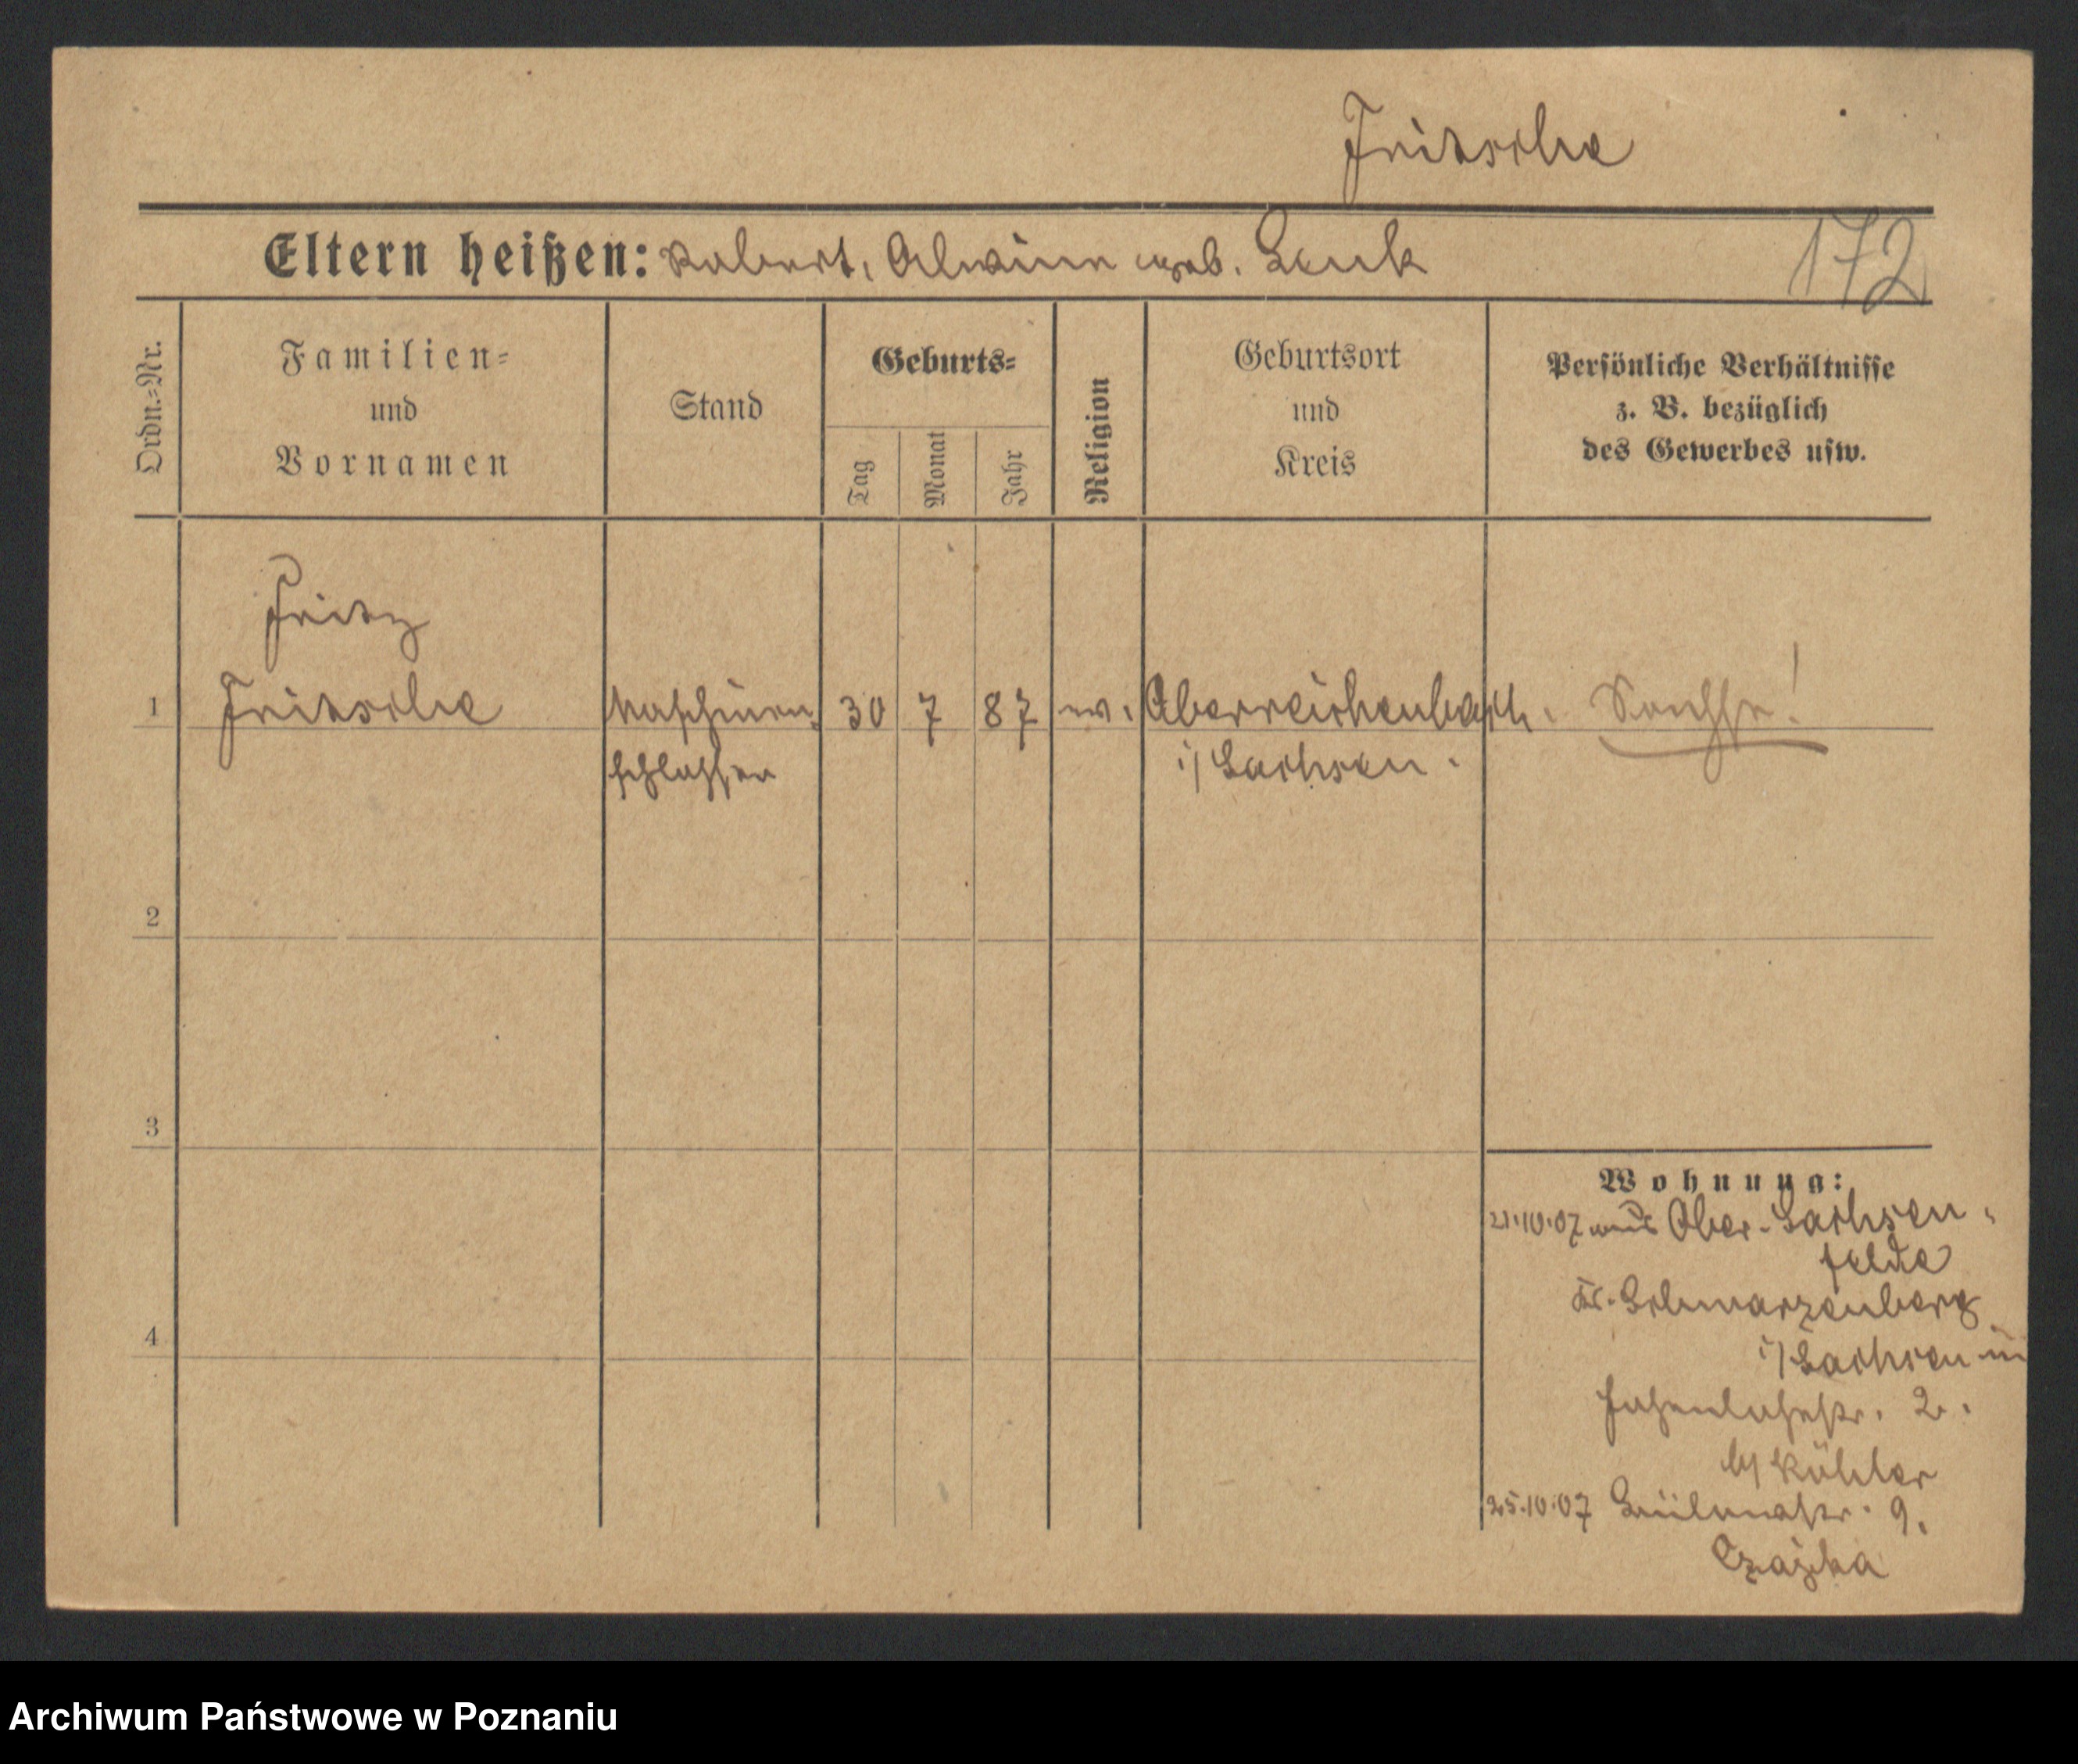 Fritzsche
Eltern heißen: Robert, Alwine geb. Lenk
172
Ordn.-Nr.
Familien-
und
Vornamen
Stand
Geburts-
Tag
Monat
Jahr
Religion
Geburtsort
und
Kreis
Persönliche Verhältnisse
z. B. bezüglich
des Gewerbes usw.
Fritz
1 Fritzsche Maschinen- 30 7 87 ev. Oberreichenbach. Sachse!
schlosser i/ Sachsen.
2
3
4
Wohnung:
21.10.07 aus Ober-Sachsen-
felde
Kr. Schwarzenberg
i/ Sachsen in
2.
b/ Köhler
25.10.07 9.
Czajka
Archiwum Państwowe w Poznaniu